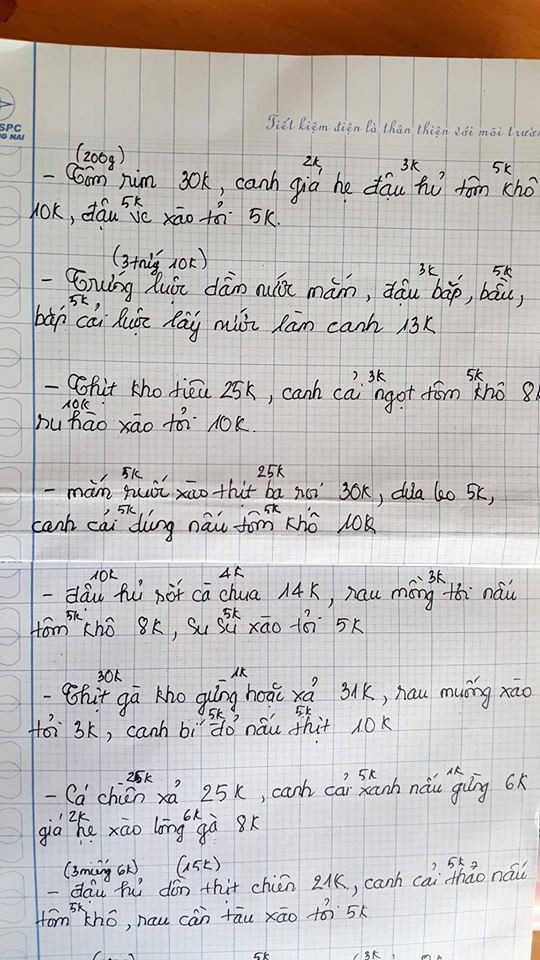 SPC
NG NAI
Tiết kiệm điện là thân thiện với môi trườn
(200g) 2K 3K 5K
- Tôm rim 30K, canh giá hẹ đậu hủ tôm khô
5K
10K, đậu ve xào tỏi 5K.
(3 trứng 10K) 3K 5K
- Trứng luộc dầm nước mắm, đậu bắp, bầu,
5K
bắp cải luộc lấy nước làm canh 13K
3K 5K
- Thịt kho tiêu 25K, canh cải ngọt tôm khô 8K
10K
su hào xào tỏi 10K.
5K 25K
- mắm ruốc xào thịt ba rọi 30K, dưa leo 5K,
5K 5K
canh cải dúng nấu tôm khô 10K
10K 4K 3K
- đậu hủ sốt cà chua 14K, rau mồng tơi nấu
5K 5K
tôm khô 8K, su su xào tỏi 5K
30K 1K
- Thịt gà kho gừng hoặc xả 31K, rau muống xào
5K 5K
tỏi 3K, canh bí đỏ nấu thịt 10K
25K 5K 1K
- Cá chiên xả 25K, canh cải xanh nấu gừng 6K
2K 6K
giá hẹ xào lòng gà 8K
(3 miếng 6K) (15K) 5K
- đậu hủ dồn thịt chiên 21K, canh cải thảo nấu
5K
tôm khô, rau cần tàu xào tỏi 5K
5K (3K